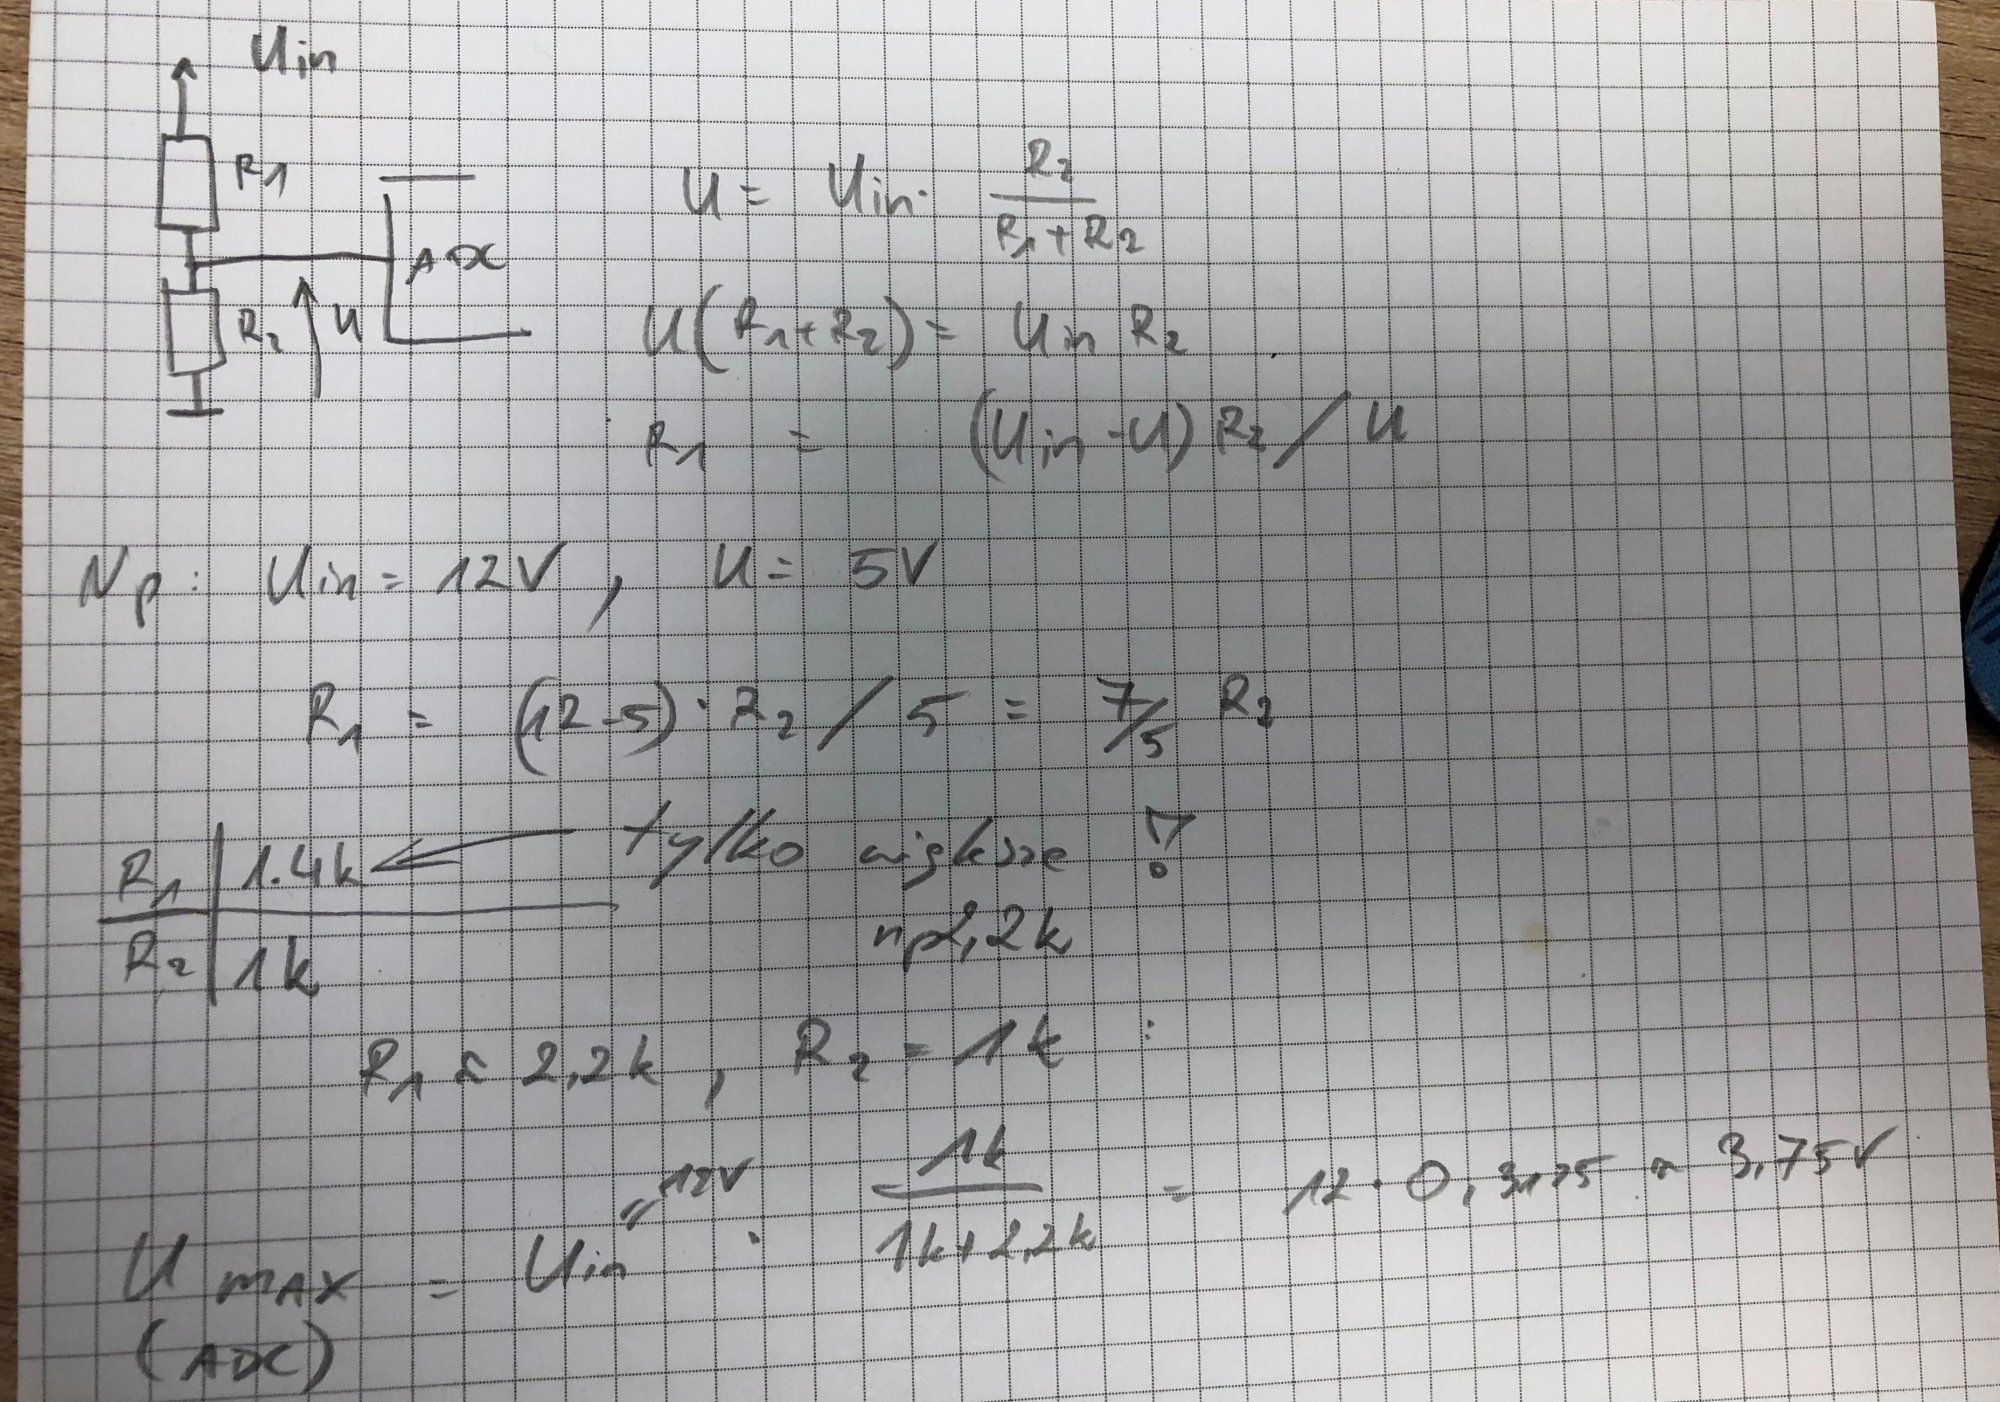 Uin
R1
ADC
R2
U
U = Uin · R2 / (R1+R2)
U(R1+R2) = Uin R2
R1 = (Uin-U) R2 / U
Np: Uin = 12V, U = 5V
R1 = (12-5) · R2 / 5 = 7/5 R2
R1 | 1.4k ← tylko większe !
R2 | 1k
np 2,2k
R1 = 2,2k, R2 = 1k :
U MAX = Uin · 1k / (1k+2,2k) = 12 · 0,3125 = 3,75V
=12V
(ADC)